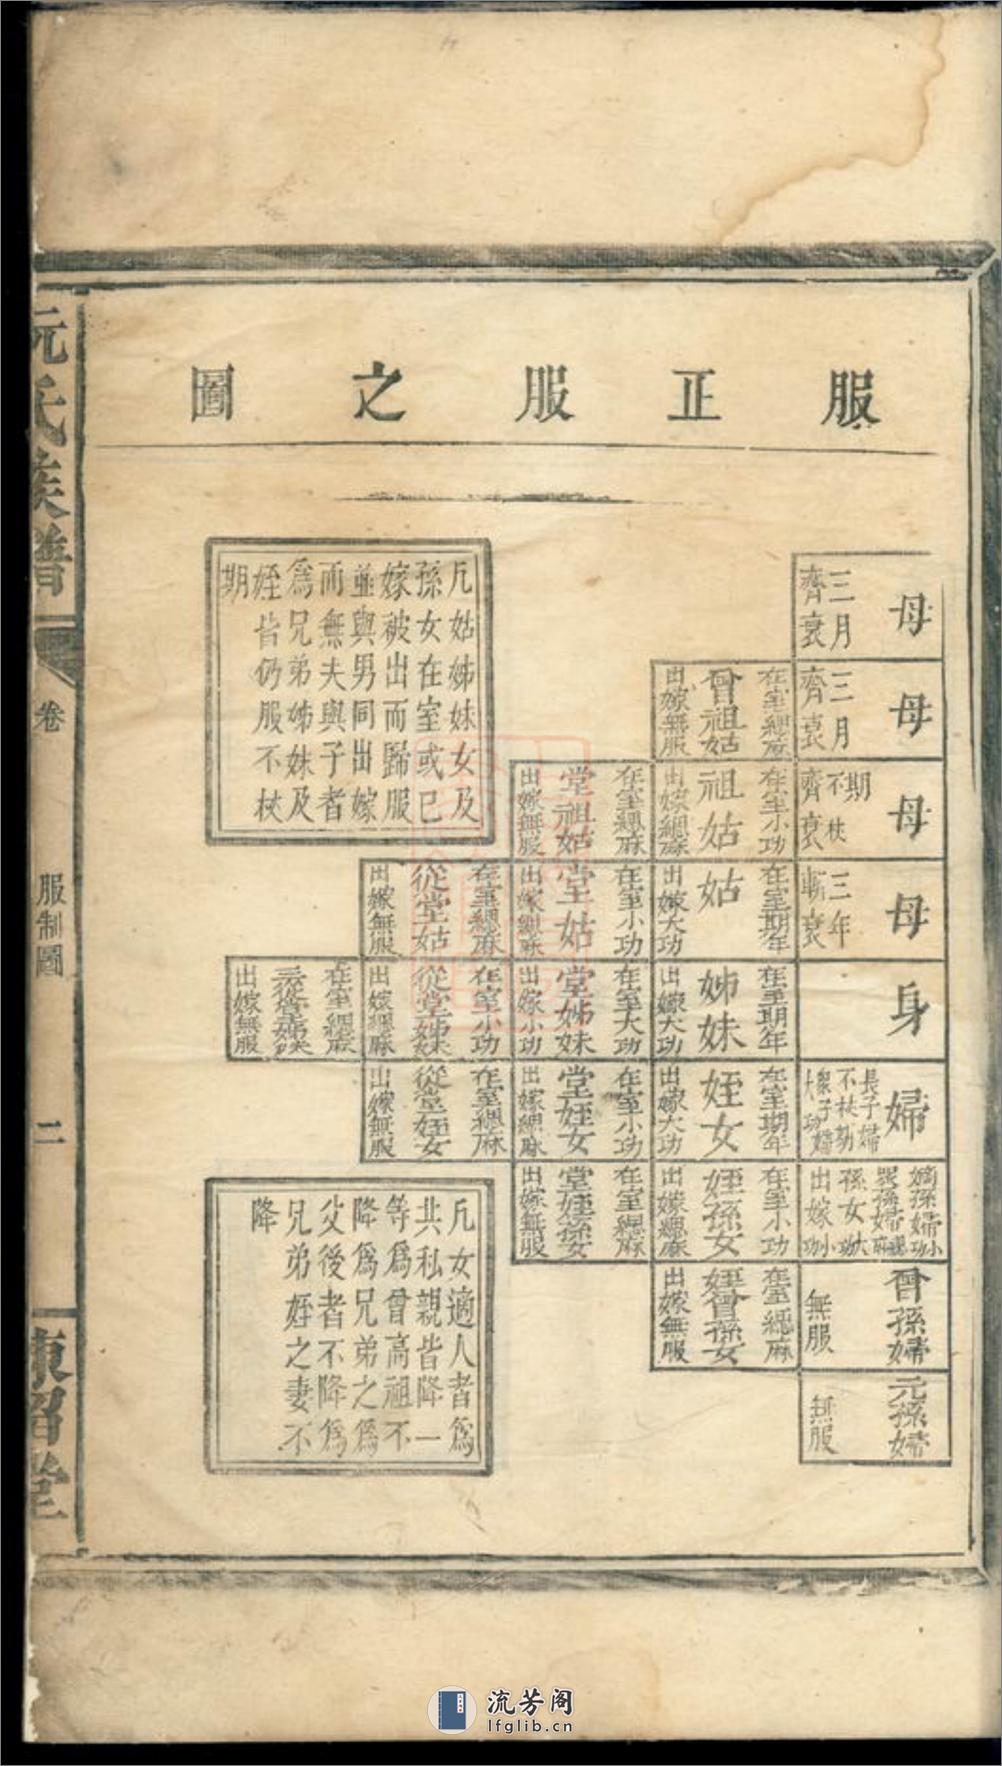 服正服之圖
母
三月
齊衰
母
三月
齊衰
在室緦麻
曾祖姑
出嫁無服
母
期
不杖
齊衰
在室小功
祖姑
出嫁緦麻
在室緦麻
堂祖姑
出嫁無服
母
三年
斬衰
在室期年
姑
出嫁大功
在室小功
堂姑
出嫁緦麻
在室緦麻
從堂姑
出嫁無服
身
在室期年
姊妹
出嫁大功
在室大功
堂姊妹
出嫁小功
在室小功
從堂姊妹
出嫁緦麻
在室緦麻
三從堂姊妹
出嫁無服
婦
長子婦
不杖期
大功
在室期年
姪女
出嫁大功
在室小功
堂姪女
出嫁緦麻
在室緦麻
從堂姪女
出嫁無服
嫡孫婦小功
眾孫婦緦麻
孫女大功
出嫁小功
在室小功
姪孫女
出嫁緦麻
在室緦麻
堂姪孫女
出嫁無服
曾孫婦
無服
在室緦麻
姪曾孫女
出嫁無服
元孫婦
無服
凡姑姊妹女及
孫女在室或已
嫁被出而歸服
並與男同出嫁
而無夫與子者
爲兄弟姊妹及
姪皆仍服不杖
期
凡女適人者爲
其私親皆降一
等爲曾高祖不
降爲兄弟之爲
父後者不降爲
兄弟姪之妻不
降
阮氏族譜
卷
服制圖
二
東招堂
流芳阁
lfglib.cn